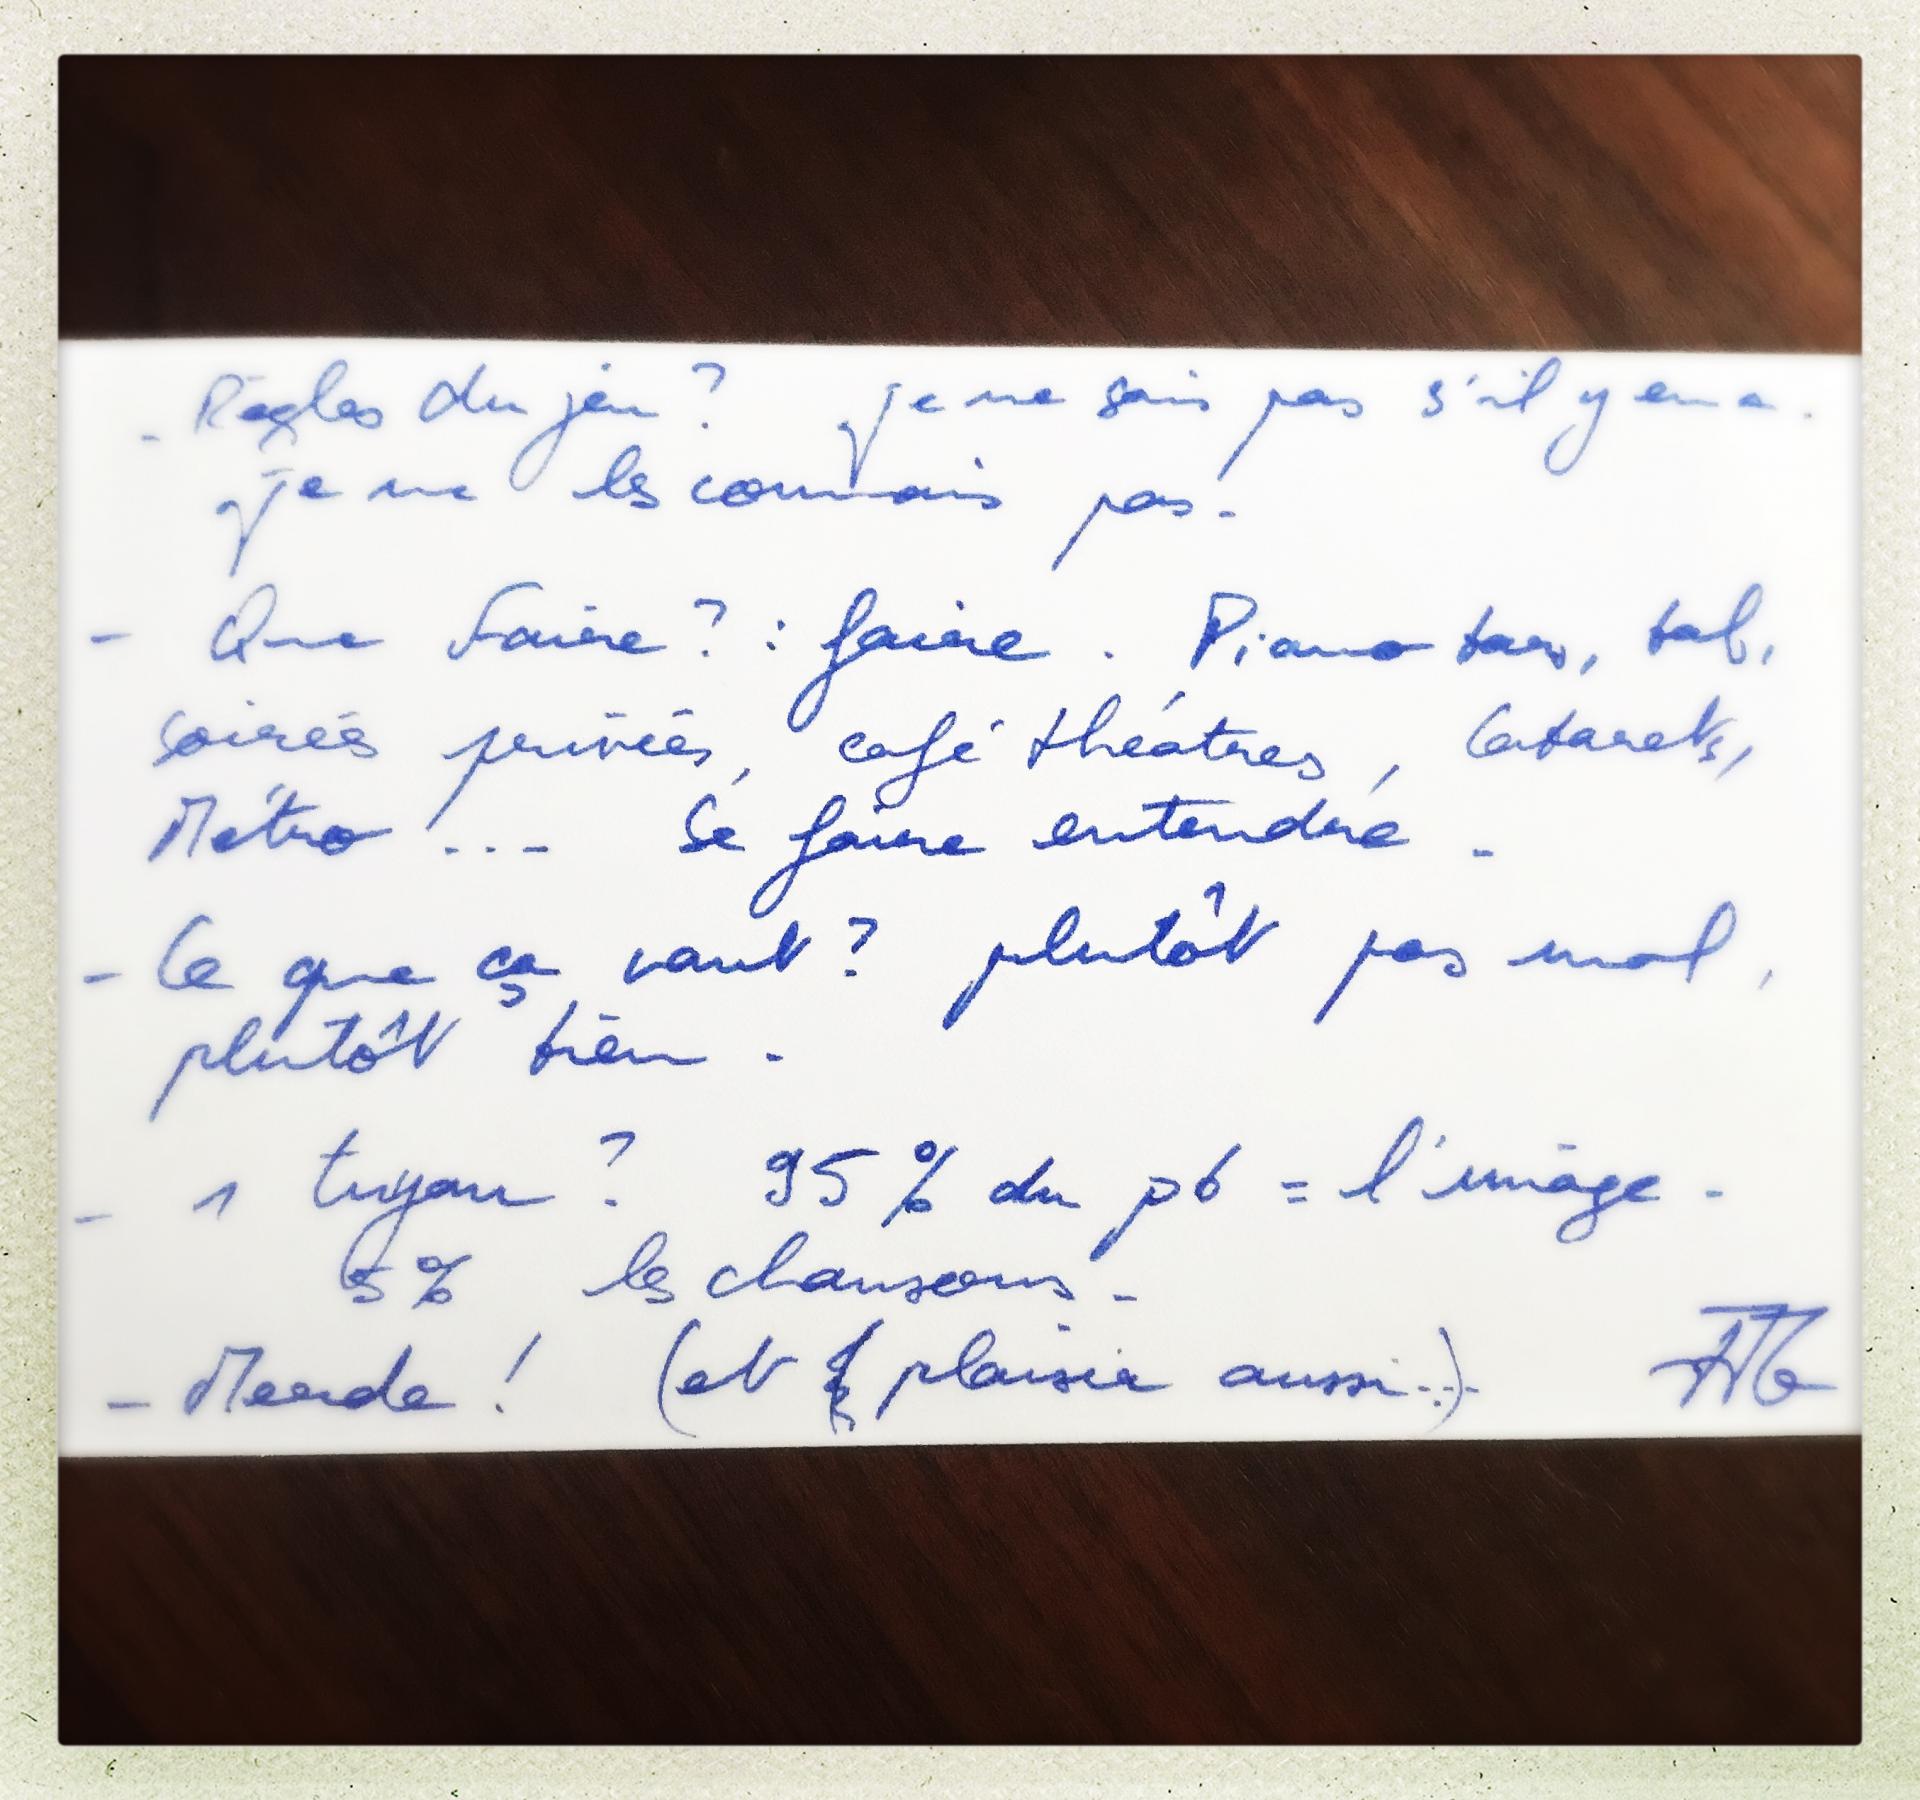 - Règles du jeu ? Je ne sais pas s'il y en a.
Je ne les connais pas.
- Que Faire ? : faire. Piano bars, bal,
soirées privées, café théâtres, Cabarets,
Métro ... Se faire entendre.
- Ce que ça vaut ? plutôt pas mal,
plutôt bien.
- 1 tuyau ? 95 % du pb = l'image.
5 % les chansons.
- Merde ! (et plaisir aussi...)